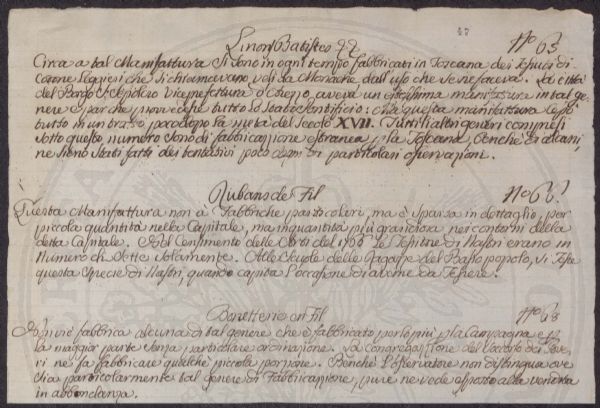 47
Linon Batistes &&
N.o 63
Circa a tal Manifattura si sono in ogni tempo fabbricati in Toscana dei Tessuti di
Cotone Leggieri che si chiamavano veli da Monache dall'uso che se ne faceva. La città
del Borgo S. Sepolcro Viceprefettura d'Arezzo, aveva un' estesissima manifattura in tal ge-
nere e par che provvedesse tutto lo Stato Pontificio: Ma questa manifattura cessò
tutto in un tratto poco dopo la metà del Secolo XVII. Tutti li altri generi compresi
sotto questo numero sono di fabbricazione estranea p la Toscana, benchè di alcuni,
ne sieno stati fatti dei tentativi poco degni di particolari osservazioni.
Rubans de Fil
N.o 66.
Questa Manifattura non à Fabbriche particolari, ma è sparsa in dettaglio, per
piccola quantità nella Capitale, ma in quantità più grandiosa nei contorni della
detta Capitale. Nel Censimento delle Arti del 1766 le Tessitore di Nastri erano in
Numero di Sette solamente. Alle Scuole delle Ragazze del Basso popolo, si Tesse
questa specie di Nastri, quando capita l'occasione di averne da Tessere.
Bonetterie en Fil
N.o 68
Non vi è fabbrica alcuna di tal genere che è fabbricato per lo più p la Campagna e p
la maggior parte senza particolare ordinazione. La Congregazione del Soccorso dei Pove-
ri ne fa fabbricare qualche piccola porzione. Benchè l'Osservatore non distingua ove
sia particolarmente tal genere di Fabbricazione, pure ne vede esposto alla vendita
in abbondanza.